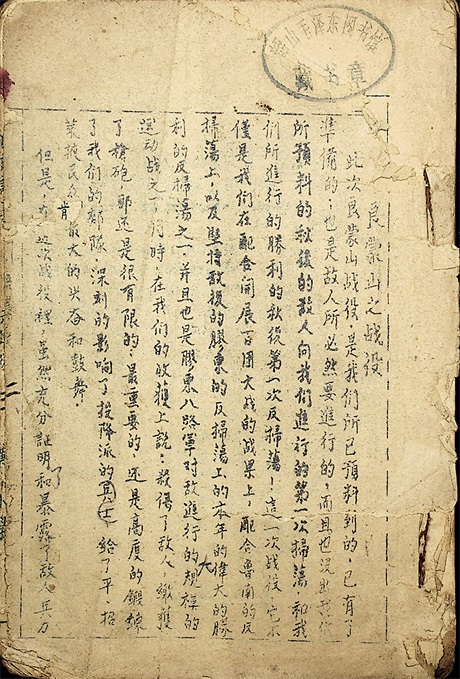 韶山毛泽东图书馆
藏书章
艮蒙山之战役
此次艮蒙山战役，是我们所已預料到的，已有了
準備的；也是敌人所必然要進行的，而且也
所預料的秋後的敌人向我们進行的第一次掃蕩，和我
们所進行的勝利的秋後第一次反掃蕩！這一次战役，它不
僅是我们在配合開展百团大战的战果上，配合魯南的反
掃蕩上，以及堅持敌後的膠東的反掃蕩上的本年的偉大的勝
利的反掃蕩之一，并且也是膠東八路軍对敌進行的大規模的
运动战之一，同時，在我们的收獲上說：殺傷了敌人，繳獲
了槍砲，那还是很有限的，最重要的，还是高度的鍛鍊
了我们的部隊，深刻的影响了投降派的，給了平、招
萊掖民众最大的兴奋和鼓舞。
但是，在这次战役裡，虽然充分証明和暴露了敌人兵力